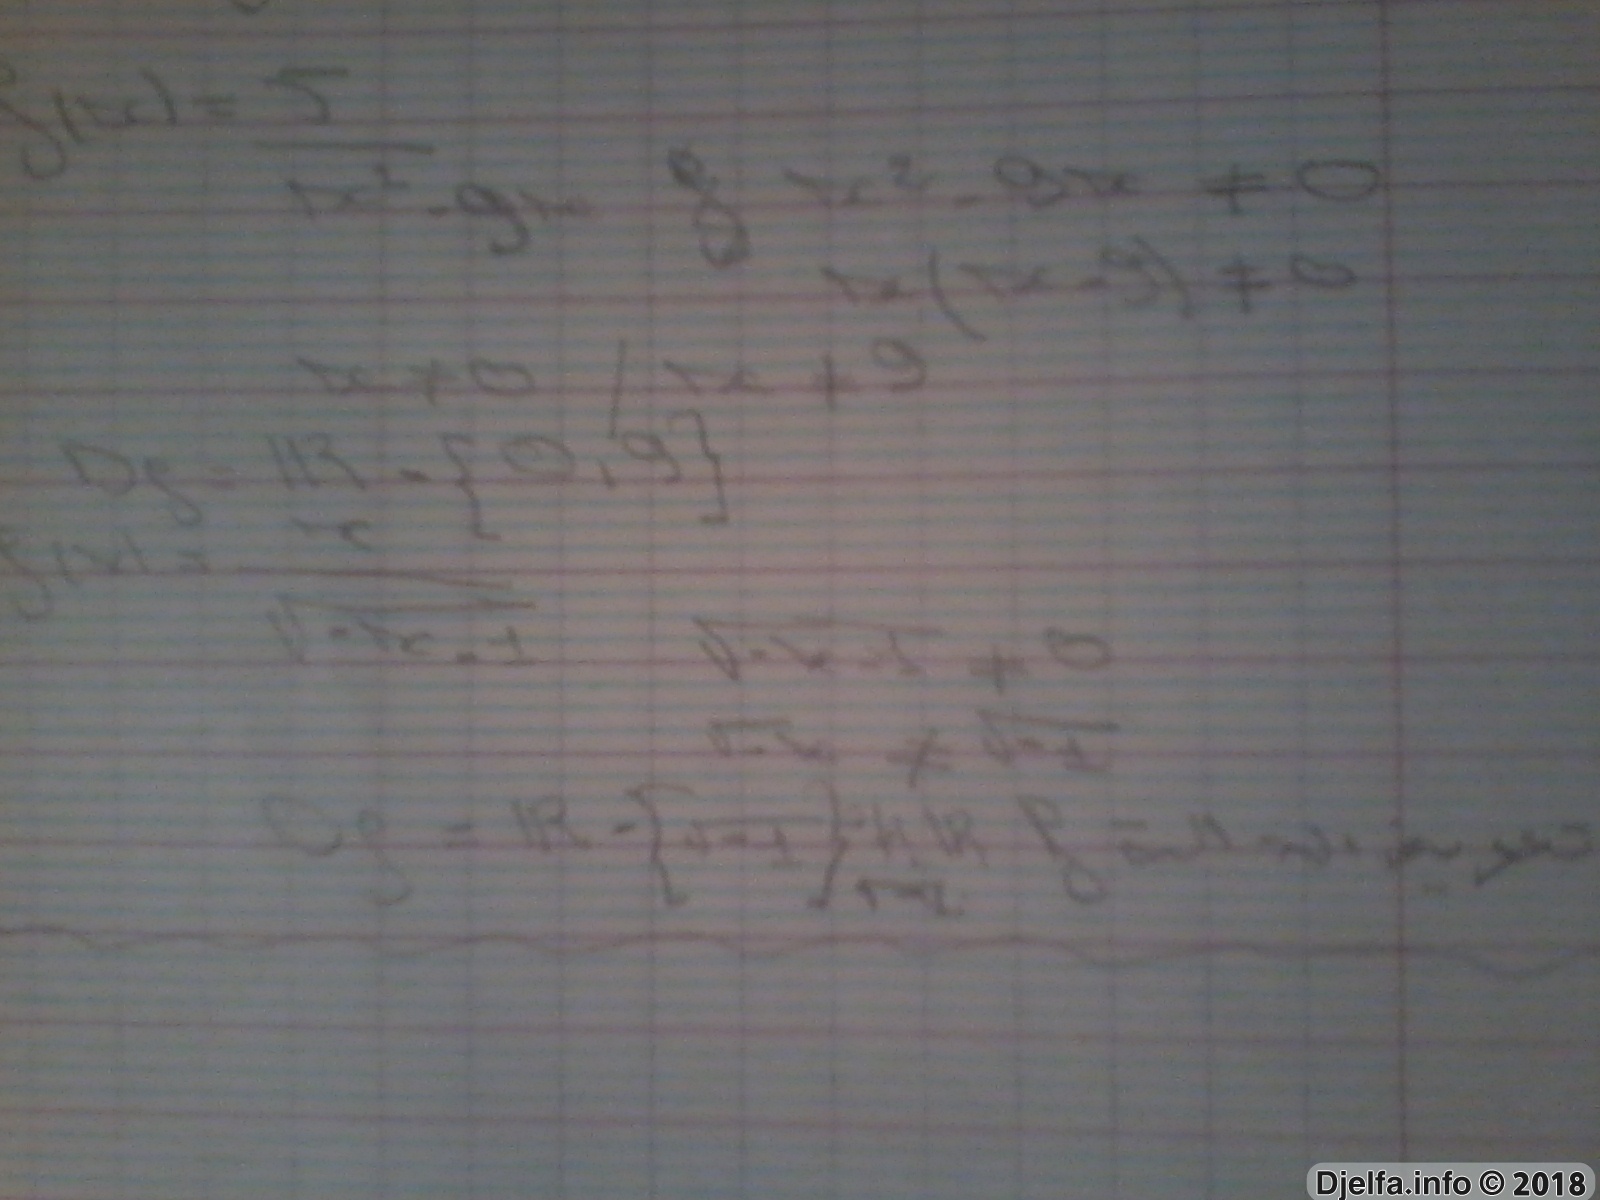 f(x) = 5
x² - 9x x² - 9x ≠ 0
x(x - 9) ≠ 0
x ≠ 0 / x ≠ 9
Df = IR - {0, 9}
f(x) = x
√-x-1 √-x-1 ≠ 0
√-x ≠ √-1
Df = IR - {√-1}
Djelfa.info © 2018